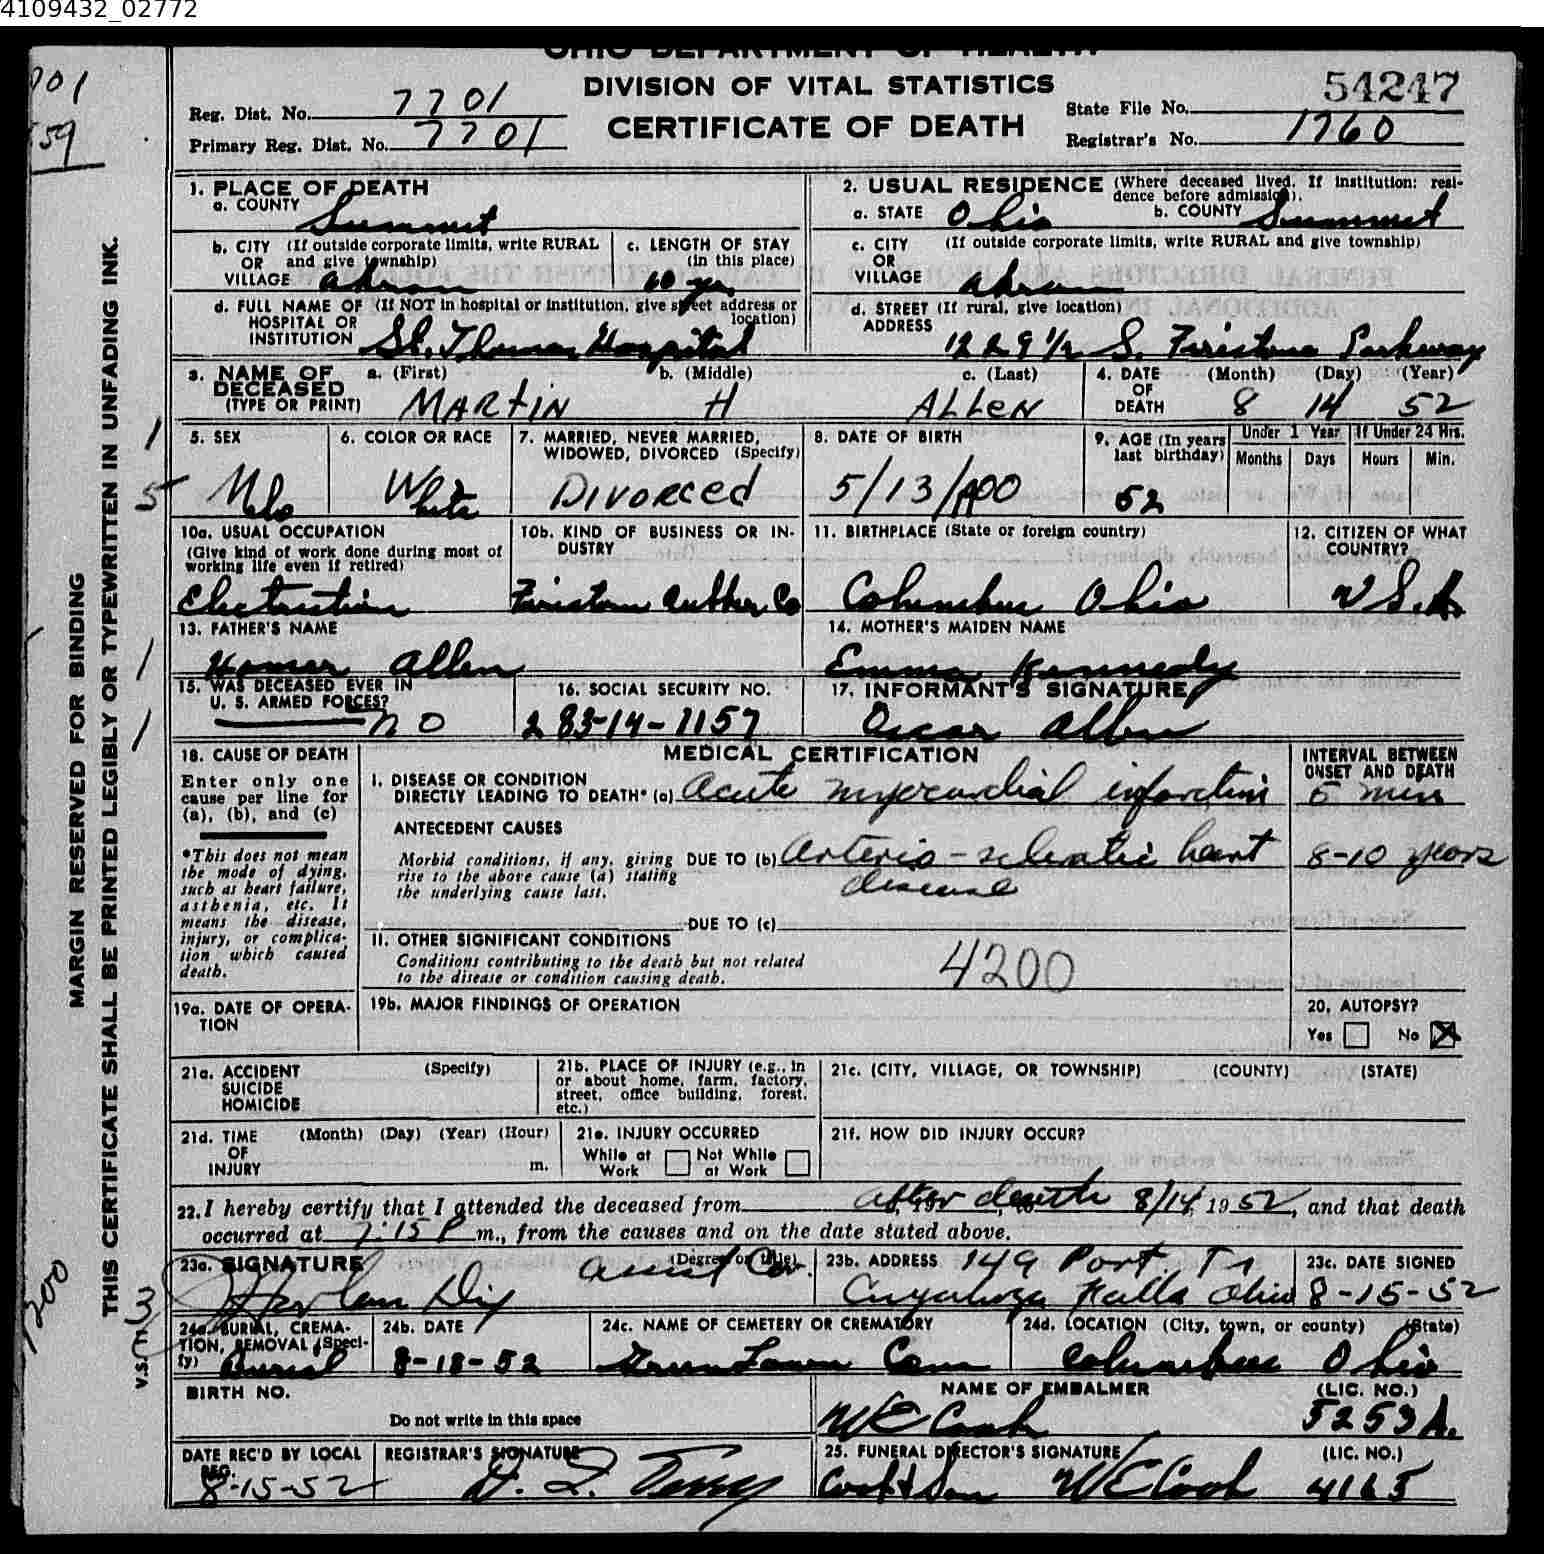 4109432_02772
OHIO DEPARTMENT OF HEALTH
DIVISION OF VITAL STATISTICS
CERTIFICATE OF DEATH
54247
Reg. Dist. No. 7701
Primary Reg. Dist. No. 7701
State File No.
Registrar's No. 1760
MARGIN RESERVED FOR BINDING
THIS CERTIFICATE SHALL BE PRINTED LEGIBLY OR TYPEWRITTEN IN UNFADING INK.
1. PLACE OF DEATH
a. COUNTY Summit
b. CITY (If outside corporate limits, write RURAL
OR and give township)
VILLAGE Akron
c. LENGTH OF STAY
(in this place)
60 yr
d. FULL NAME OF (If NOT in hospital or institution, give street address or
HOSPITAL OR location)
INSTITUTION St. Thomas Hospital
2. USUAL RESIDENCE (Where deceased lived. If institution: resi-
dence before admission).
a. STATE Ohio b. COUNTY Summit
c. CITY (If outside corporate limits, write RURAL and give township)
OR
VILLAGE Akron
d. STREET (If rural, give location)
ADDRESS 1229 1/2 S. Firestone Parkway
3. NAME OF DECEASED (TYPE OR PRINT)
a. (First) b. (Middle) c. (Last)
MARTIN H ALLEN
4. DATE OF DEATH (Month) (Day) (Year)
8 14 52
5. SEX
Male
6. COLOR OR RACE
White
7. MARRIED, NEVER MARRIED,
WIDOWED, DIVORCED (Specify)
Divorced
8. DATE OF BIRTH
5/13/1900
9. AGE (In years
last birthday)
52
Under 1 Year
Months Days
If Under 24 Hrs.
Hours Min.
10a. USUAL OCCUPATION
(Give kind of work done during most of
working life even if retired)
Electrician
10b. KIND OF BUSINESS OR IN-
DUSTRY
Firestone Rubber Co
11. BIRTHPLACE (State or foreign country)
Columbus Ohio
12. CITIZEN OF WHAT
COUNTRY?
U S. A.
13. FATHER'S NAME
Homer Allen
14. MOTHER'S MAIDEN NAME
Emma Kennedy
15. WAS DECEASED EVER IN
U. S. ARMED FORCES?
no
16. SOCIAL SECURITY NO.
283-14-1157
17. INFORMANT'S SIGNATURE
Oscar Allen
18. CAUSE OF DEATH
Enter only one
cause per line for
(a), (b), and (c)
*This does not mean
the mode of dying,
such as heart failure,
asthenia, etc. It
means the disease,
injury, or complica-
tion which caused
death.
MEDICAL CERTIFICATION
I. DISEASE OR CONDITION
DIRECTLY LEADING TO DEATH* (a) Acute myocardial infarction
ANTECEDENT CAUSES
Morbid conditions, if any, giving
rise to the above cause (a) stating
the underlying cause last.
DUE TO (b) Arterio-sclerotic heart
disease
DUE TO (c)
II. OTHER SIGNIFICANT CONDITIONS
Conditions contributing to the death but not related
to the disease or condition causing death.
4200
INTERVAL BETWEEN
ONSET AND DEATH
5 min
8-10 years
19a. DATE OF OPERA-
TION
19b. MAJOR FINDINGS OF OPERATION
20. AUTOPSY?
Yes No
21a. ACCIDENT (Specify)
SUICIDE
HOMICIDE
21b. PLACE OF INJURY (e.g., in
or about home, farm, factory,
street, office building, forest,
etc.)
21c. (CITY, VILLAGE, OR TOWNSHIP) (COUNTY) (STATE)
21d. TIME (Month) (Day) (Year) (Hour)
OF
INJURY m.
21e. INJURY OCCURRED
While at Work Not While at Work
21f. HOW DID INJURY OCCUR?
22. I hereby certify that I attended the deceased from after death 8/14, 1952, and that death
occurred at 7:15 P m., from the causes and on the date stated above.
23a. SIGNATURE (Degree or title)
Harlan Dix Assist Cor.
23b. ADDRESS 149 Port. Tr
Cuyahoga Falls Ohio
23c. DATE SIGNED
8-15-52
24a. BURIAL, CREMA-
TION, REMOVAL (Speci-
fy) Burial
24b. DATE
8-18-52
24c. NAME OF CEMETERY OR CREMATORY
Green Lawn Cem
24d. LOCATION (City, town, or county) (State)
Columbus Ohio
BIRTH NO.
Do not write in this space
NAME OF EMBALMER (LIC. NO.)
W E Cook 5253 A.
DATE REC'D BY LOCAL
REG.
8-15-52
REGISTRAR'S SIGNATURE
25. FUNERAL DIRECTOR'S SIGNATURE (LIC. NO.)
Cook & Son W E Cook 4165